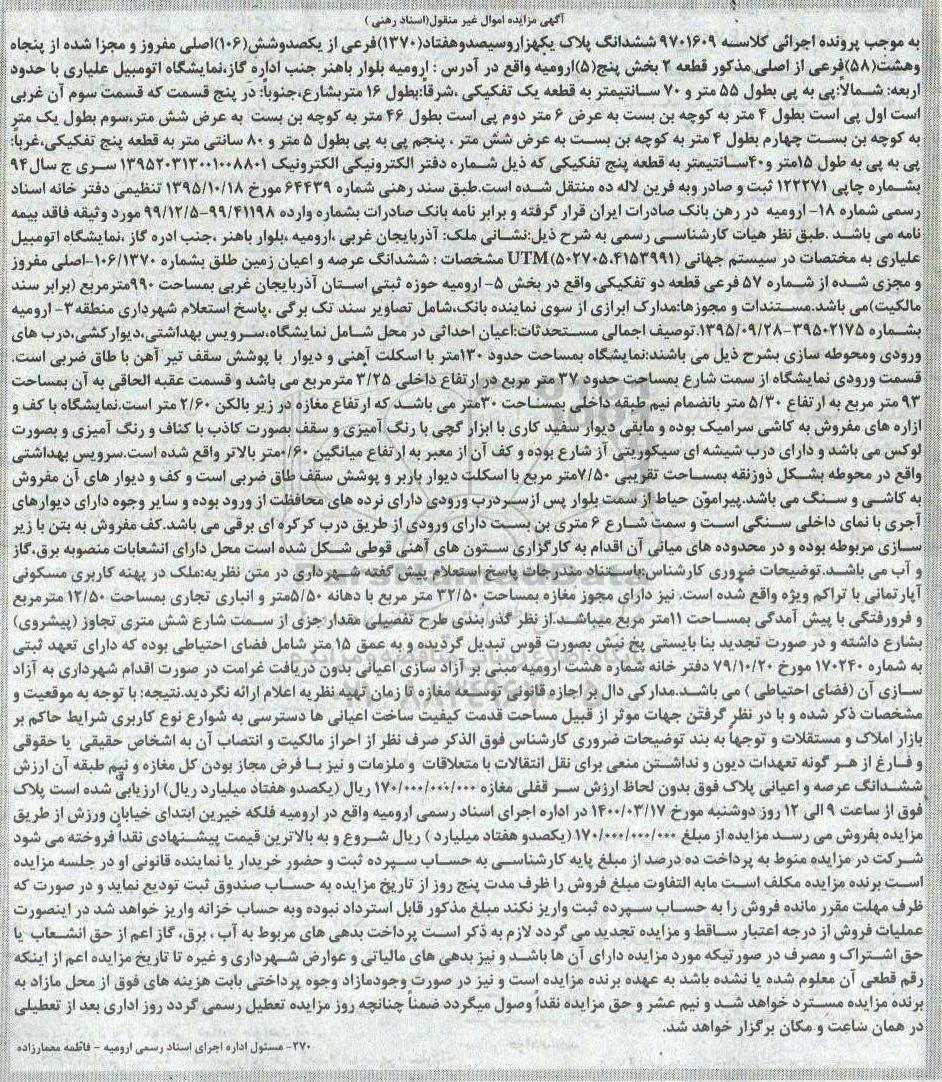 آگهی مزایده اموال غیر منقول(اسناد رهنی )
به موجب پرونده اجرائی کلاسه ۹۷۰۱۶۰۹ ششدانگ پلاک یکهزاروسیصدوهفتاد(۱۳۷۰)فرعی از یکصدوشش(۱۰۶)اصلی مفروز و مجزا شده از پنجاه
وهشت(۵۸)فرعی از اصلی مذکور قطعه ۲ بخش پنج(۵)ارومیه واقع در آدرس : ارومیه بلوار باهنر جنب اداره گاز،نمایشگاه اتومبیل علیاری با حدود
اربعه: شمالاً:پی به پی بطول ۵۵ متر و ۷۰ سانتیمتر به قطعه یک تفکیکی ،شرقاً:بطول ۱۶ متربشارع،جنوباً: در پنج قسمت که قسمت سوم آن غربی
است اول پی است بطول ۴ متر به کوچه بن بست به عرض ۶ متر دوم پی است بطول ۴۶ متر به کوچه بن بست به عرض شش متر،سوم بطول یک متر
به کوچه بن بست چهارم بطول ۴ متر به کوچه بن بست به عرض شش متر ، پنجم پی به پی بطول ۵ متر و ۸۰ سانتی متر به قطعه پنج تفکیکی،غرباً:
پی به پی به طول ۱۵متر و۴۰سانتیمتر به قطعه پنج تفکیکی که ذیل شماره دفتر الکترونیکی الکترونیک ۱۳۹۵۲۰۳۱۳۰۰۱۰۰۸۸۰۱ سری ج سال ۹۴
بشماره چاپی ۱۲۲۲۷۱ ثبت و صادر وبه فرین لاله ده منتقل شده است.طبق سند رهنی شماره ۶۴۴۳۹ مورخ ۱۳۹۵/۱۰/۱۸ تنظیمی دفتر خانه اسناد
رسمی شماره ۱۸- ارومیه در رهن بانک صادرات ایران قرار گرفته و برابر نامه بانک صادرات بشماره وارده ۹۹/۴۱۱۹۸-۹۹/۱۲/۵ مورد وثیقه فاقد بیمه
نامه می باشد .طبق نظر هیات کارشناسی رسمی به شرح ذیل:نشانی ملک: آذربایجان غربی ،ارومیه ،بلوار باهنر ،جنب ادره گاز ،نمایشگاه اتومبیل
علیاری به مختصات در سیستم جهانی UTM(۵۰۲۷۰۵.۴۱۵۳۹۹۱) مشخصات : ششدانگ عرصه و اعیان زمین طلق بشماره ۱۰۶/۱۳۷۰-اصلی مفروز
و مجزی شده از شماره ۵۷ فرعی قطعه دو تفکیکی واقع در بخش ۵- ارومیه حوزه ثبتی استان آذربایجان غربی بمساحت ۹۹۰مترمربع (برابر سند
مالکیت)می باشد.مستندات و مجوزها:مدارک ابرازی از سوی نماینده بانک،شامل تصاویر سند تک برگی ،پاسخ استعلام شهرداری منطقه۳- ارومیه
بشماره ۳۹۵۰۲۱۷۵-۱۳۹۵/۰۹/۲۸.توصیف اجمالی مستحدثات:اعیان احداثی در محل شامل نمایشگاه،سرویس بهداشتی،دیوارکشی،درب های
ورودی ومحوطه سازی بشرح ذیل می باشند:نمایشگاه بمساحت حدود ۱۳۰متر با اسکلت آهنی و دیوار با پوشش سقف تیر آهن با طاق ضربی است.
قسمت ورودی نمایشگاه از سمت شارع بمساحت حدود ۳۷ متر مربع در ارتفاع داخلی ۳/۲۵ مترمربع می باشد و قسمت عقبه الحاقی به آن بمساحت
۹۳ متر مربع به ارتفاع ۵/۳۰ متر بانضمام نیم طبقه داخلی بمساحت ۳۰متر می باشد که ارتفاع مغازه در زیر بالکن ۲/۶۰ متر است.نمایشگاه با کف و
ازاره های مفروش به کاشی سرامیک بوده و مابقی دیوار سفید کاری با ابزار گچی با رنگ آمیزی و سقف بصورت کاذب با کناف و رنگ آمیزی و بصورت
لوکس می باشد و دارای درب شیشه ای سیکوریتی از شارع بوده و کف آن از معبر به ارتفاع میانگین ۰/۶۰متر بالاتر واقع شده است.سرویس بهداشتی
واقع در محوطه بشکل ذوزنقه بمساحت تقریبی ۷/۵۰متر مربع با اسکلت دیوار باربر و پوشش سقف طاق ضربی است و کف و دیوار های آن مفروش
به کاشی و سنگ می باشد.پیرامون حیاط از سمت بلوار پس ازسردرب ورودی دارای نرده های محافظت از ورود بوده و سایر وجوه دارای دیوارهای
آجری با نمای داخلی سنگی است و سمت شارع ۶ متری بن بست دارای ورودی از طریق درب کرکره ای برقی می باشد.کف مفروش به بتن با زیر
سازی مربوطه بوده و در محدوده های میانی آن اقدام به کارگزاری ستون های آهنی قوطی شکل شده است محل دارای انشعابات منصوبه برق،گاز
و آب می باشد.توضیحات ضروری کارشناس:باستناد مندرجات پاسخ استعلام پیش گفته شهرداری در متن نظریه:ملک در پهنه کاربری مسکونی
آپارتمانی با تراکم ویژه واقع شده است. نیز دارای مجوز مغازه بمساحت ۳۲/۵۰ متر مربع با دهانه ۵/۵۰متر و انباری تجاری بمساحت ۱۲/۵۰ مترمربع
و فرورفتگی با پیش آمدگی بمساحت ۱۱متر مربع میباشد.از نظر گذر بندی طرح تفصیلی مقدار جزی از سمت شارع شش متری تجاوز (پیشروی)
بشارع داشته و در صورت تجدید بنا بایستی پخ نبش بصورت قوس تبدیل گردیده و به عمق ۱۵ متر شامل فضای احتیاطی بوده که دارای تعهد ثبتی
به شماره ۱۷۰۲۴۰ مورخ ۷۹/۱۰/۲۰ دفتر خانه شماره هشت ارومیه مبنی بر آزاد سازی اعیانی بدون دریافت غرامت در صورت اقدام شهرداری به آزاد
سازی آن (فضای احتیاطی ) می باشد.مدارکی دال بر اجازه قانونی توسعه مغازه تا زمان تهیه نظریه اعلام ارائه نگردید.نتیجه: با توجه به موقعیت و
مشخصات ذکر شده و با در نظر گرفتن جهات موثر از قبیل مساحت قدمت کیفیت ساخت اعیانی ها دسترسی به شوارع نوع کاربری شرایط حاکم بر
بازار املاک و مستقلات و توجها به بند توضیحات ضروری کارشناس فوق الذکر صرف نظر از احراز مالکیت و انتصاب آن به اشخاص حقیقی یا حقوقی
و فارغ از هر گونه تعهدات دیون و نداشتن منعی برای نقل انتقالات با متعلاقات و ملزمات و نیز با فرض مجاز بودن کل مغازه و نیم طبقه آن ارزش
ششدانگ عرصه و اعیانی پلاک فوق بدون لحاظ ارزش سر قفلی مغازه ۱۷۰/۰۰۰/۰۰۰/۰۰۰ ریال (یکصدو هفتاد میلیارد ریال) ارزیابی شده است پلاک
فوق از ساعت ۹ الی ۱۲ روز دوشنبه مورخ ۱۴۰۰/۰۳/۱۷ در اداره اجرای اسناد رسمی ارومیه واقع در ارومیه فلکه خیرین ابتدای خیابان ورزش از طریق
مزایده بفروش می رسد مزایده از مبلغ ۱۷۰/۰۰۰/۰۰۰/۰۰۰ (یکصدو هفتاد میلیارد ) ریال شروع و به بالاترین قیمت پیشنهادی نقداً فروخته می شود
شرکت در مزایده منوط به پرداخت ده درصد از مبلغ پایه کارشناسی به حساب سپرده ثبت و حضور خریدار یا نماینده قانونی او در جلسه مزایده
است برنده مزایده مکلف است مابه التفاوت مبلغ فروش را ظرف مدت پنج روز از تاریخ مزایده به حساب صندوق ثبت تودیع نماید و در صورت که
ظرف مهلت مقرر مانده فروش را به حساب سپرده ثبت واریز نکند مبلغ مذکور قابل استرداد نبوده وبه حساب خزانه واریز خواهد شد در اینصورت
عملیات فروش از درجه اعتبار ساقط و مزایده تجدید می گردد لازم به ذکر است پرداخت بدهی های مربوط به آب ، برق، گاز اعم از حق انشعاب یا
حق اشتراک و مصرف در صورتیکه مورد مزایده دارای آن ها باشد و نیز بدهی های مالیاتی و عوارض شهرداری و غیره تا تاریخ مزایده اعم از اینکه
رقم قطعی آن معلوم شده یا نشده باشد به عهده برنده مزایده است و نیز در صورت وجودمازاد وجوه پرداختی بابت هزینه های فوق از محل مازاد به
برنده مزایده مسترد خواهد شد و نیم عشر و حق مزایده نقداً وصول میگردد ضمناً چنانچه روز مزایده تعطیل رسمی گردد روز اداری بعد از تعطیلی
در همان ساعت و مکان برگزار خواهد شد.
۲۷۰- مسئول اداره اجرای اسناد رسمی ارومیه - فاطمه معمارزاده